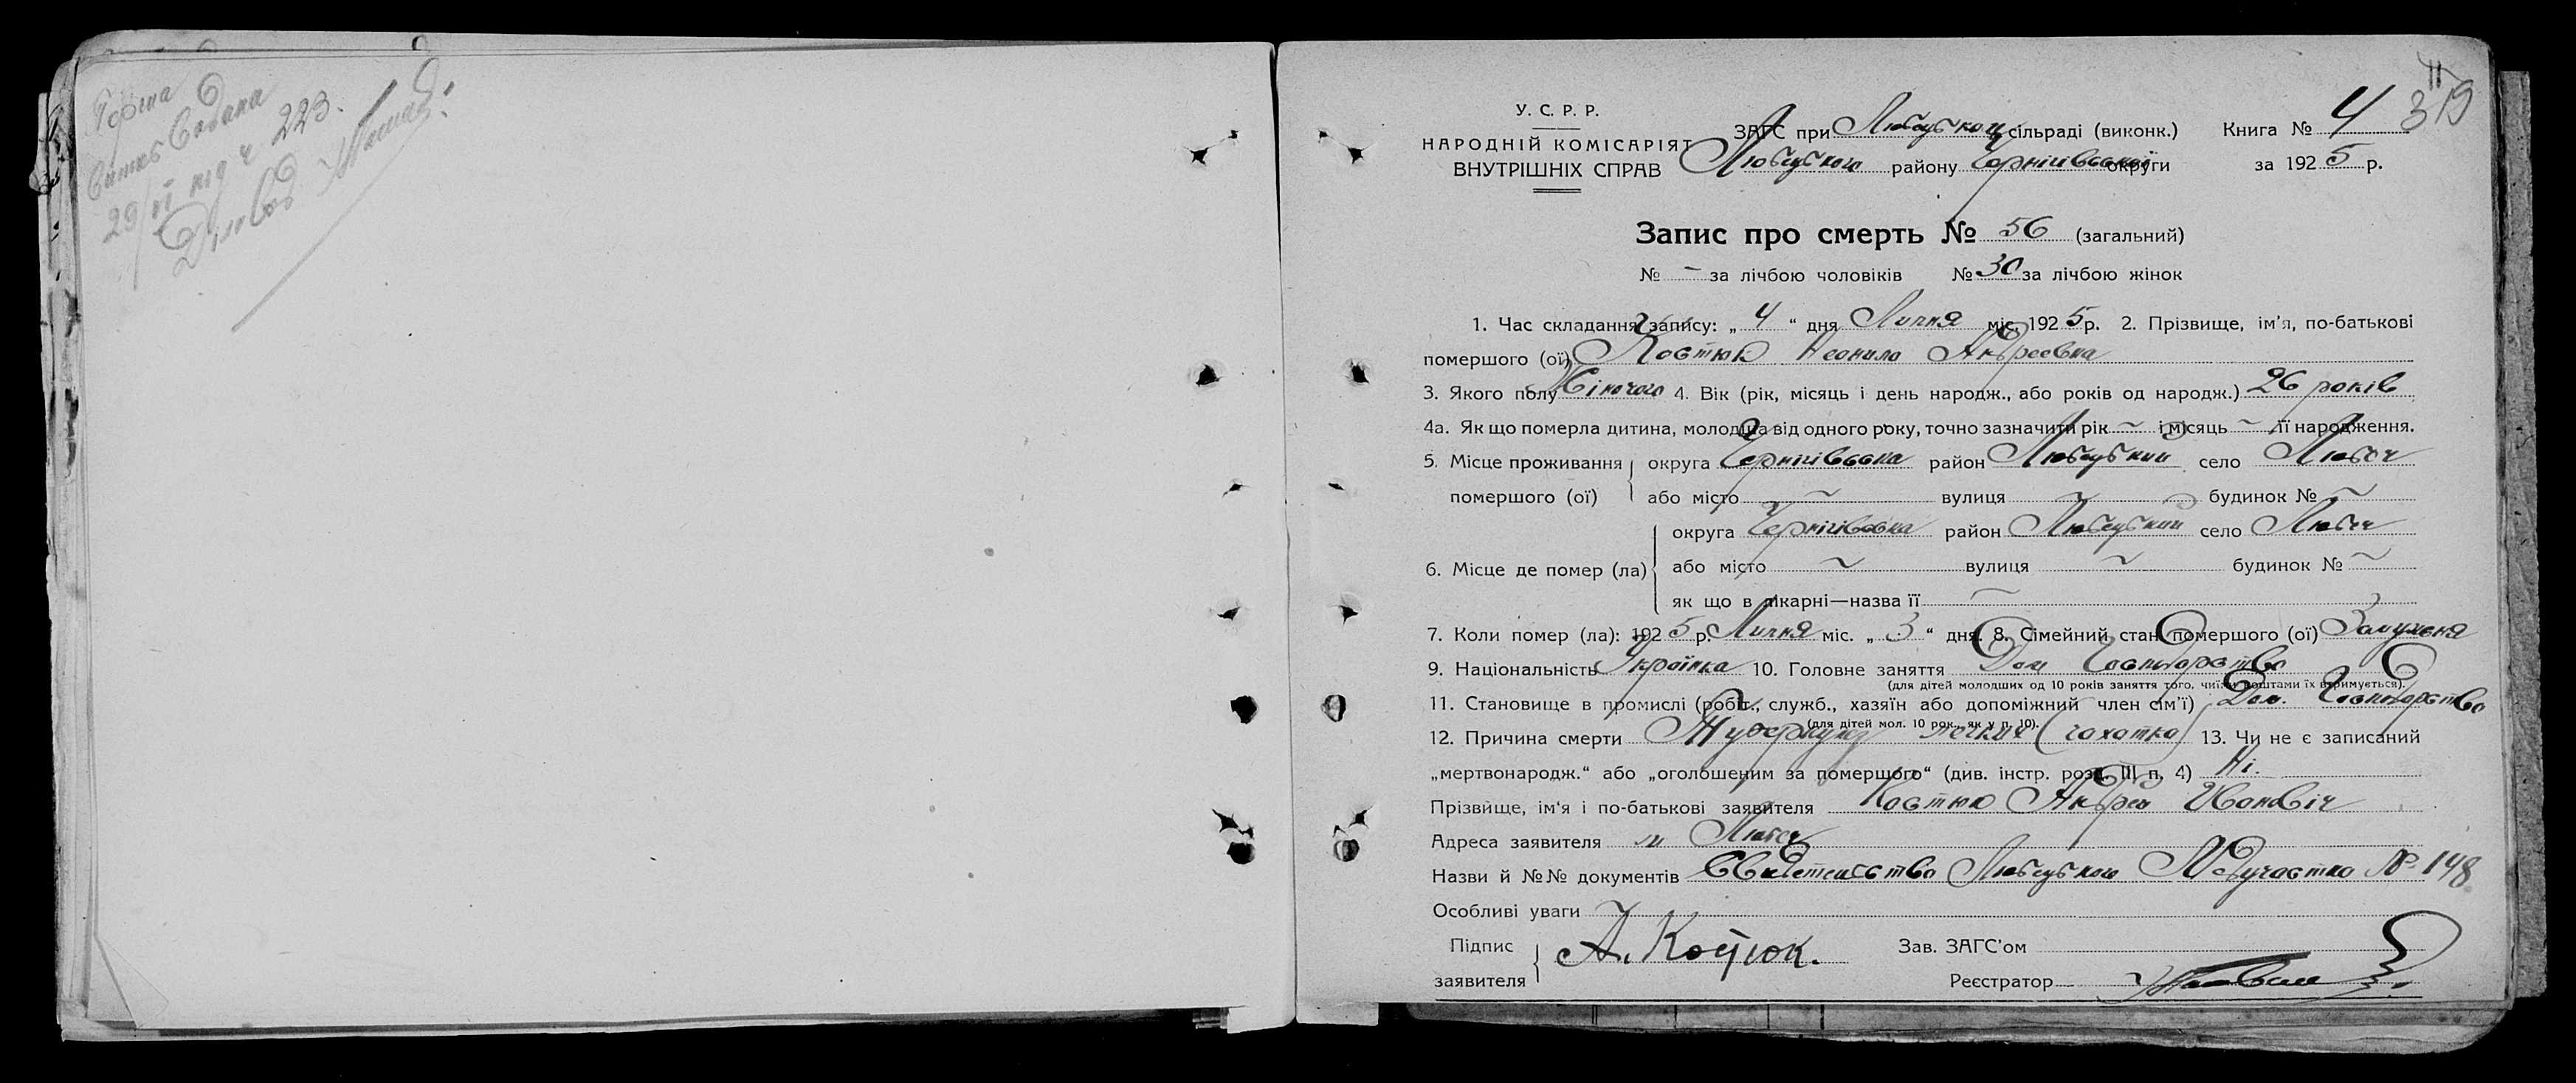 223.
У. С. Р. Р.
НАРОДНІЙ КОМІСАРІЯТ
ВНУТРІШНІХ СПРАВ
ЗАГС при Любецькой сільраді (виконк.) Книга № 4 319
Любецького району Чернігівської округи за 1925 р.
Запис про смерть № 56 (загальний)
№ – за лічбою чоловіків № 30 за лічбою жінок
1. Час складання запису: „ 4 “ дня Липня міс. 1925 р. 2. Прізвище, ім’я, по-батькові
помершого (ої) Костюк Неонила Андреевна
3. Якого полу Жіночого 4. Вік (рік, місяць і день народж., або років од народж.) 26 років
4а. Як що померла дитина, молодша від одного року, точно зазначити рік ~ і місяць ~ її народження.
5. Місце проживання округа Чернігівська район Любецький село Любеч
помершого (ої) або місто ~ вулиця ~ будинок № ~
округа Чернігівська район Любецький село Любеч
6. Місце де помер (ла) або місто ~ вулиця ~ будинок № ~
як що в лікарні—назва її ~
7. Коли помер (ла): 1925 р. Липня міс. „ 3 “ дня. 8. Сімейний стан помершого (ої) Замужня
9. Національність Українка 10. Головне заняття Дом Господарство
(для дітей молодших од 10 років заняття того, чиїми коштами їх втримується).
11. Становище в промислі (робіт., служб., хазяїн або допоміжний член сім’ї) Дом. Господарство
(для дітей мол. 10 рок., як у п. 10).
12. Причина смерти Туберкульоз легких (чахотка) 13. Чи не є записаний
„мертвонародж.“ або „оголошеним за помершого“ (див. інстр. розд. III п. 4) Ні.
Прізвище, ім’я і по-батькові заявителя Костюк Андрей Іванович
Адреса заявителя м Любеч
Назви й №№ документів Свидетельство Любецького Медучастка № 148
Особливі уваги
Підпис
заявителя А. Костюк.
Зав. ЗАГС’ом
Реєстратор